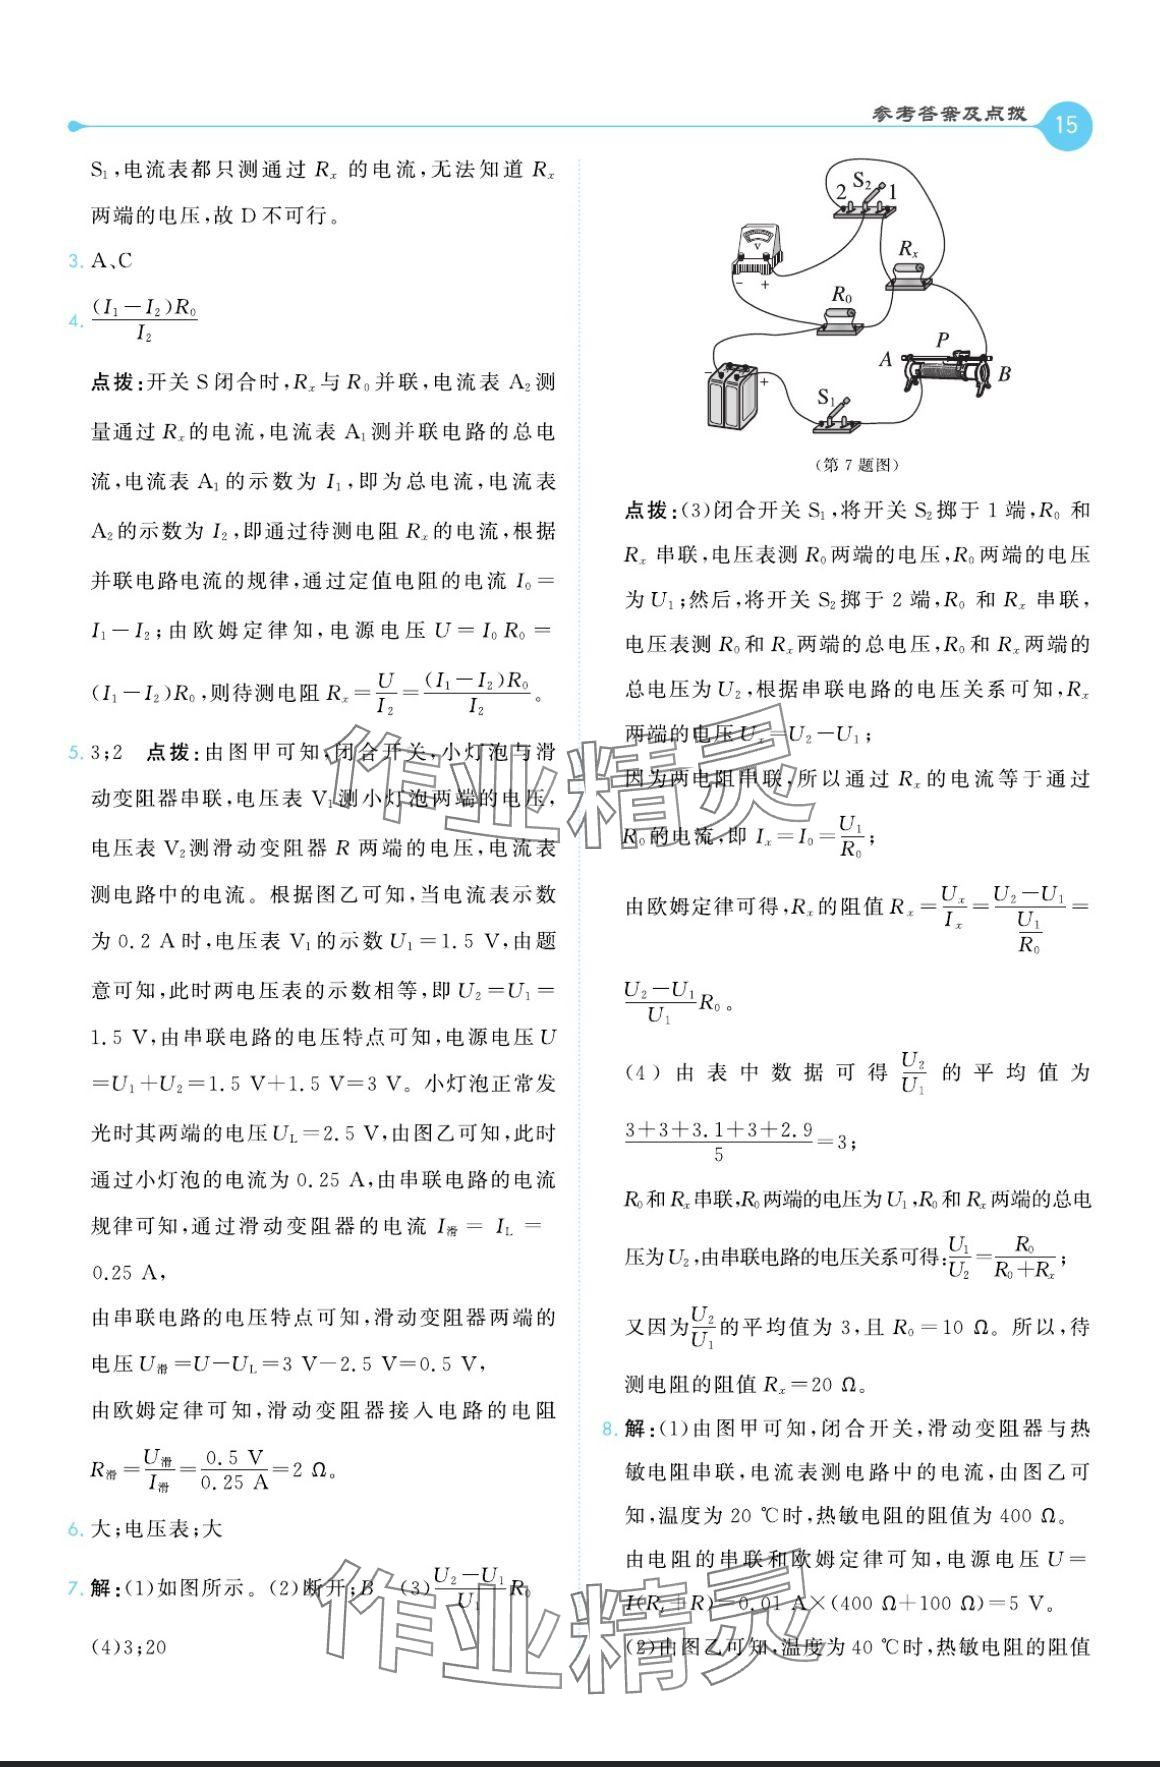 参考答案及点拨 15
S₁,电流表都只测通过 Rₓ 的电流,无法知道 Rₓ
两端的电压,故 D 不可行。
3. A、C
4. (I₁－I₂)R₀/I₂
点拨:开关 S 闭合时,Rₓ 与 R₀ 并联,电流表 A₂ 测
量通过 Rₓ 的电流,电流表 A₁ 测并联电路的总电
流,电流表 A₁ 的示数为 I₁,即为总电流,电流表
A₂ 的示数为 I₂,即通过待测电阻 Rₓ 的电流,根据
并联电路电流的规律,通过定值电阻的电流 I₀＝
I₁－I₂;由欧姆定律知,电源电压 U＝I₀R₀＝
(I₁－I₂)R₀,则待测电阻 Rₓ＝U/I₂＝(I₁－I₂)R₀/I₂。
5. 3;2 点拨:由图甲可知,闭合开关,小灯泡与滑
动变阻器串联,电压表 V₁ 测小灯泡两端的电压,
电压表 V₂ 测滑动变阻器 R 两端的电压,电流表
测电路中的电流。根据图乙可知,当电流表示数
为 0.2 A 时,电压表 V₁ 的示数 U₁＝1.5 V,由题
意可知,此时两电压表的示数相等,即 U₂＝U₁＝
1.5 V,由串联电路的电压特点可知,电源电压 U
＝U₁＋U₂＝1.5 V＋1.5 V＝3 V。小灯泡正常发
光时其两端的电压 U_L＝2.5 V,由图乙可知,此时
通过小灯泡的电流为 0.25 A,由串联电路的电流
规律可知,通过滑动变阻器的电流 I滑＝I_L＝
0.25 A,
由串联电路的电压特点可知,滑动变阻器两端的
电压 U滑＝U－U_L＝3 V－2.5 V＝0.5 V,
由欧姆定律可知,滑动变阻器接入电路的电阻
R滑＝U滑/I滑＝0.5 V/0.25 A＝2 Ω。
6. 大;电压表;大
7. 解:(1)如图所示。(2)断开;B (3)(U₂－U₁)/U₁ R₀
(4)3;20
2 S₂ 1
V
－ ＋
Rₓ
R₀
A P B
－ ＋
S₁
(第 7 题图)
点拨:(3)闭合开关 S₁,将开关 S₂ 掷于 1 端,R₀ 和
Rₓ 串联,电压表测 R₀ 两端的电压,R₀ 两端的电压
为 U₁;然后,将开关 S₂ 掷于 2 端,R₀ 和 Rₓ 串联,
电压表测 R₀ 和 Rₓ 两端的总电压,R₀ 和 Rₓ 两端的
总电压为 U₂,根据串联电路的电压关系可知,Rₓ
两端的电压 Uₓ＝U₂－U₁;
因为两电阻串联,所以通过 Rₓ 的电流等于通过
R₀ 的电流,即 Iₓ＝I₀＝U₁/R₀;
由欧姆定律可得,Rₓ 的阻值 Rₓ＝Uₓ/Iₓ＝(U₂－U₁)/(U₁/R₀)＝
(U₂－U₁)/U₁ R₀。
(4)由表中数据可得 U₂/U₁ 的平均值为
(3＋3＋3.1＋3＋2.9)/5＝3;
R₀ 和 Rₓ 串联,R₀ 两端的电压为 U₁,R₀ 和 Rₓ 两端的总电
压为 U₂,由串联电路的电压关系可得:U₁/U₂＝R₀/(R₀＋Rₓ);
又因为 U₂/U₁ 的平均值为 3,且 R₀＝10 Ω。所以,待
测电阻的阻值 Rₓ＝20 Ω。
8. 解:(1)由图甲可知,闭合开关,滑动变阻器与热
敏电阻串联,电流表测电路中的电流,由图乙可
知,温度为 20 ℃时,热敏电阻的阻值为 400 Ω。
由电阻的串联和欧姆定律可知,电源电压 U＝
I(Rₜ＋R)＝0.01 A×(400 Ω＋100 Ω)＝5 V。
(2)由图乙可知,温度为 40 ℃时,热敏电阻的阻值
作业精灵
作业精灵